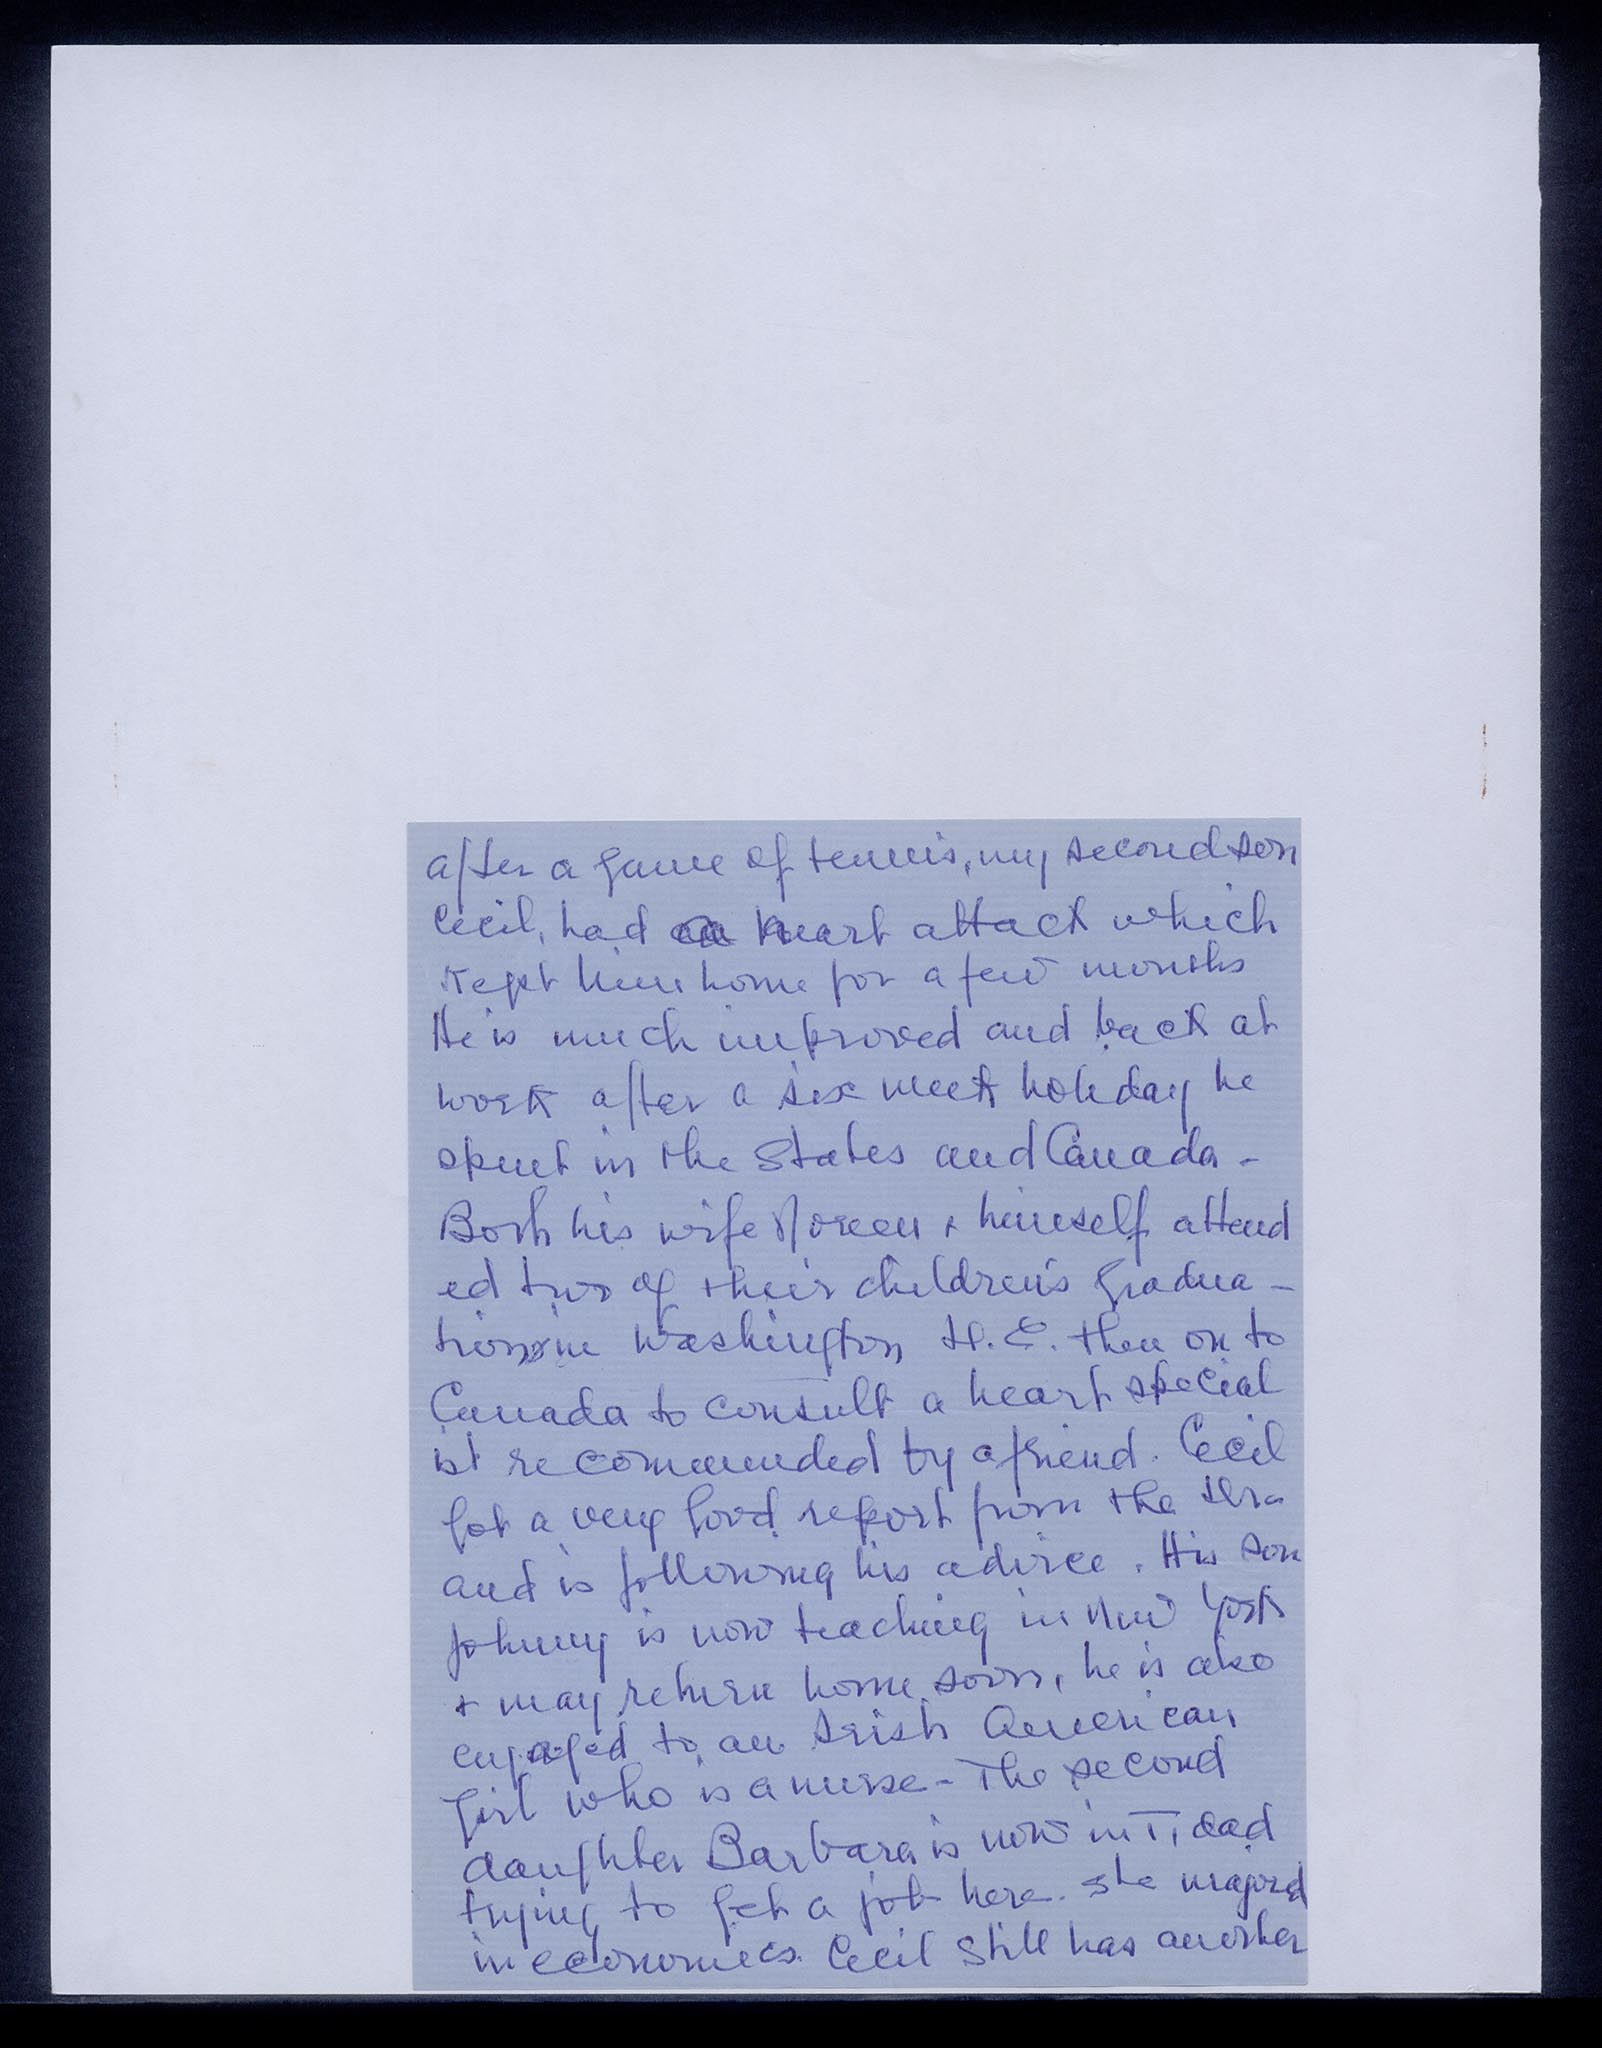 after a game of tennis, my second son
Cecil, had a heart attack which
kept him home for a few months
He is much improved and back at
work after a six week holiday he
spent in the States and Canada -
Both his wife Noreen + himself attend
ed two of their children's gradua -
tions in Washington D.C. then on to
Canada to consult a heart special
ist recommended by a friend. Cecil
got a very good report from the Dr.
and is following his advice. His son
Johnny is now teaching in New York
+ may return home soon, he is also
engaged to an Irish American
girl who is a nurse - The second
daughter Barbara is now in T,dad
trying to get a job here. She majored
in economics. Cecil still has another